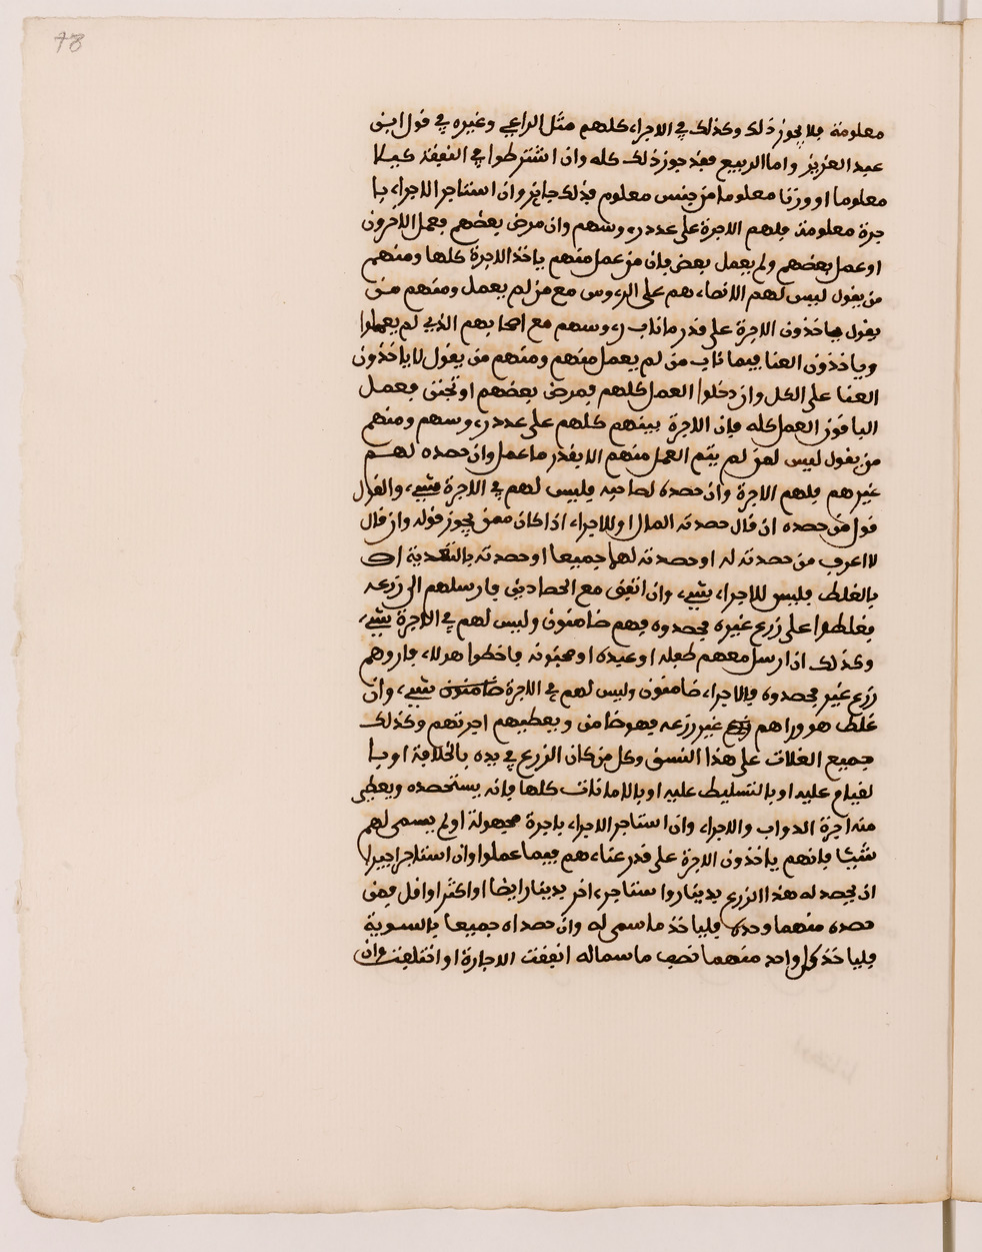 78
معلومة فلا يجوز ذلك وكذلك في الاجراء كلهم مثل الراعي وغيره في قول ابن
عبد العزيز واما الربيع فقد جوز ذلك كله وان اشترطوا في النفقة كيلا
معلوما او وزنا معلوما من جنس معلوم فذلك جايز وان استاجر الاجراء با
جرة معلومة فلهم الاجرة على عدد رءوسهم وان مرض بعضهم فعمل الاخرون
او عمل بعضهم ولم يعمل بعض فان من عمل منهم ياخذ الاجرة كلها ومنهم
من يقول ليس لهم الا نصاءهم على الرءوس مع من لم يعمل ومنهم من
يقول ياخذون الاجرة على قدر ما ناب رءوسهم مع اصحابهم الذي لم يعملوا
وياخذون العنا فيما ناب من لم يعمل منهم ومنهم من يقول لا ياخذون
العنا على الكل وان دخلوا العمل كلهم فمرض بعضهم او تجنن فعمل
الباقون العمل كله فان الاجرة بينهم كلهم على عدد رءوسهم ومنهم
من يقول ليس لمن لم يتم العمل منهم الا بقدر ما عمل وان حصده لهم
غيرهم فلهم الاجرة وان حصده لصاحبه فليس لهم في الاجرة شيء والقول
قول من حصده ان قال حصدته المال او للاجراء اذا كان ممن يجوز قوله وان قال
لا اعرف من حصدته له او حصدته لهما جميعا او حصدته بالتعدية او
بالغلط فليس للاجراء شيء وان اتفق مع الحصادين فارسلهم الى زرعه
فغلطوا على زرع غيره فحصدوه فهم ضامنون وليس لهم في الاجرة شيء
وكذلك ان ارسل معهم طفله او عبده او مجنونه فاخطوا هولاء فاروهم
زرع غير فحصدوه فالاجراء ضامنون وليس لهم في الاجرة ضامنون شيء وان
غلط هو وراهم غير زرعه فهو ضامن ويعطيهم اجرتهم وكذلك
جميع الغلات على هذا النسق وكل من كان الزرع في يده بالخلافة او با
لقيام عليه او بالتسليط عليه او بالامانات كلها فانه يستحصده ويعطي
منه اجرة الدواب والاجراء وان استاجر الاجراء باجرة مجهولة او لم يسمى لهم
شيئا فانهم ياخذون الاجرة على قدر عناءهم فيما عملوا وان استاجر اجيرا
ان يحصد له هذا الزرع بدينار واستاجر ءاخر بدينار ايضا او اكثر او اقل فمن
حصده منهما وحده فلياخذ ما سمى له وان حصداه جميعا بالسوية
فلياخذ كل واحد منهما نصف ما سما له اتفقت الاجارة او اختلفت وان